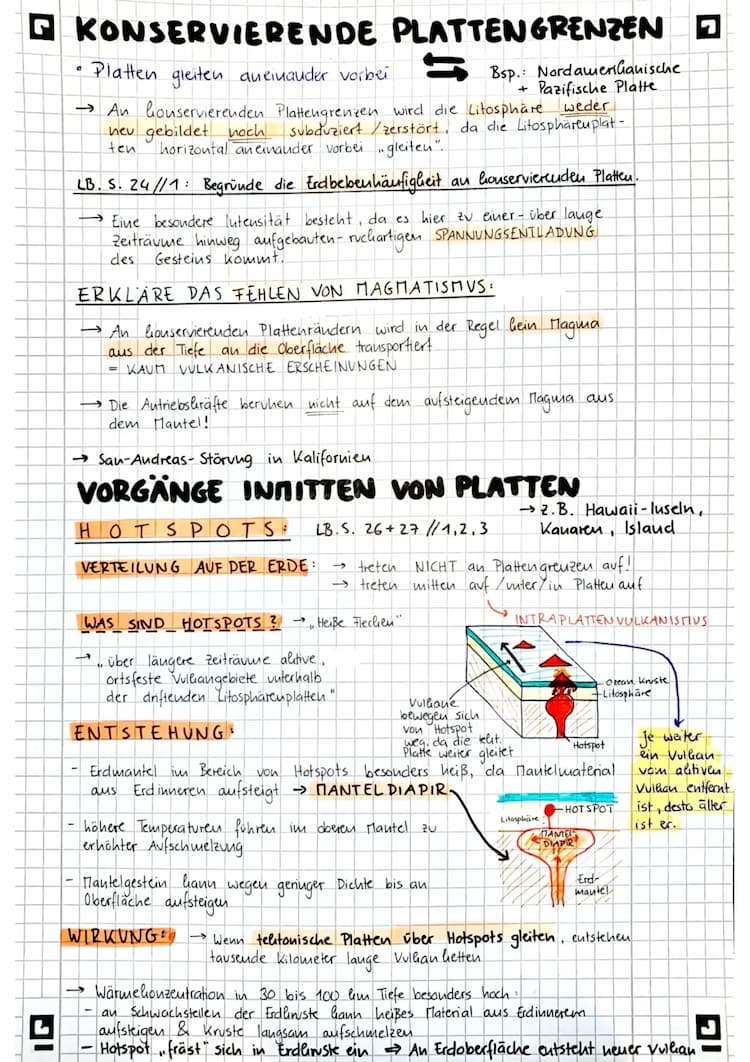 KONSERVIERENDE PLATTENGRENZEN
• Platten gleiten aneinander vorbei
Bsp.: Nordamerikanische
+ Pazifische Platte
→ An konservierenden Plattengrenzen wird die Litosphäre weder
neu gebildet noch subduziert/zerstört, da die Litosphärenplat-
ten horizontal aneinander vorbei „gleiten".
LB. S. 24//1: Begründe die Erdbebenhäufigkeit an konservierenden Platten.
→ Eine besondere Intensität besteht, da es hier zu einer - über lange
Zeiträume hinweg aufgebauten - ruckartigen SPANNUNGSENTLADUNG
des Gesteins kommt.
ERKLÄRE DAS FEHLEN VON MAGMATISMUS:
→ An konservierenden Plattenrändern wird in der Regel kein Magma
aus der Tiefe an die Oberfläche transportiert
= KAUM VULKANISCHE ERSCHEINUNGEN
→ Die Antriebskräfte beruhen nicht auf dem aufsteigendem Magma aus
dem Mantel!
→ San-Andreas-Störung in Kalifornien
VORGÄNGE INMITTEN VON PLATTEN
→ z.B. Hawaii-Inseln,
Kanaren, Island
HOTSPOTS: LB. S. 26+27 //1,2,3
VERTEILUNG AUF DER ERDE: → treten NICHT an Plattengrenzen auf!
→ treten mitten auf/unter/in Platten auf
WAS SIND HOTSPOTS? → „Heiße Flecken"
INTRAPLATTENVULKANISMUS
→ „über längere Zeiträume aktive,
ortsfeste Vulkangebiete unterhalb
der driftenden Litosphärenplatten"
Ozean. Kruste
Litosphäre
Hotspot
Vulkane
bewegen sich
von Hotspot
weg, da die tekt.
Platte weiter gleitet
Je weiter
ein Vulkan
vom aktiven
Vulkan entfernt
ist, desto älter
ist er.
ENTSTEHUNG:
- Erdmantel im Bereich von Hotspots besonders heiß, da Mantelmaterial
aus Erdinneren aufsteigt → MANTELDIAPIR
- höhere Temperaturen führen im oberen Mantel zu
erhöhter Aufschmelzung
- Mantelgestein kann wegen geringer Dichte bis an
Oberfläche aufsteigen
HOTSPOT
Litosphäre
MANTEL-
DIAPIR
Erd-
mantel
WIRKUNG: → Wenn tektonische Platten über Hotspots gleiten, entstehen
tausende Kilometer lange Vulkanketten
→ Wärmekonzentration in 30 bis 100 km Tiefe besonders hoch:
- an Schwachstellen der Erdkruste kann heißes Material aus Erdinnerem
aufsteigen & Kruste langsam aufschmelzen
- Hotspot „fräst" sich in Erdkruste ein ⇒ An Erdoberfläche entsteht neuer Vulkan